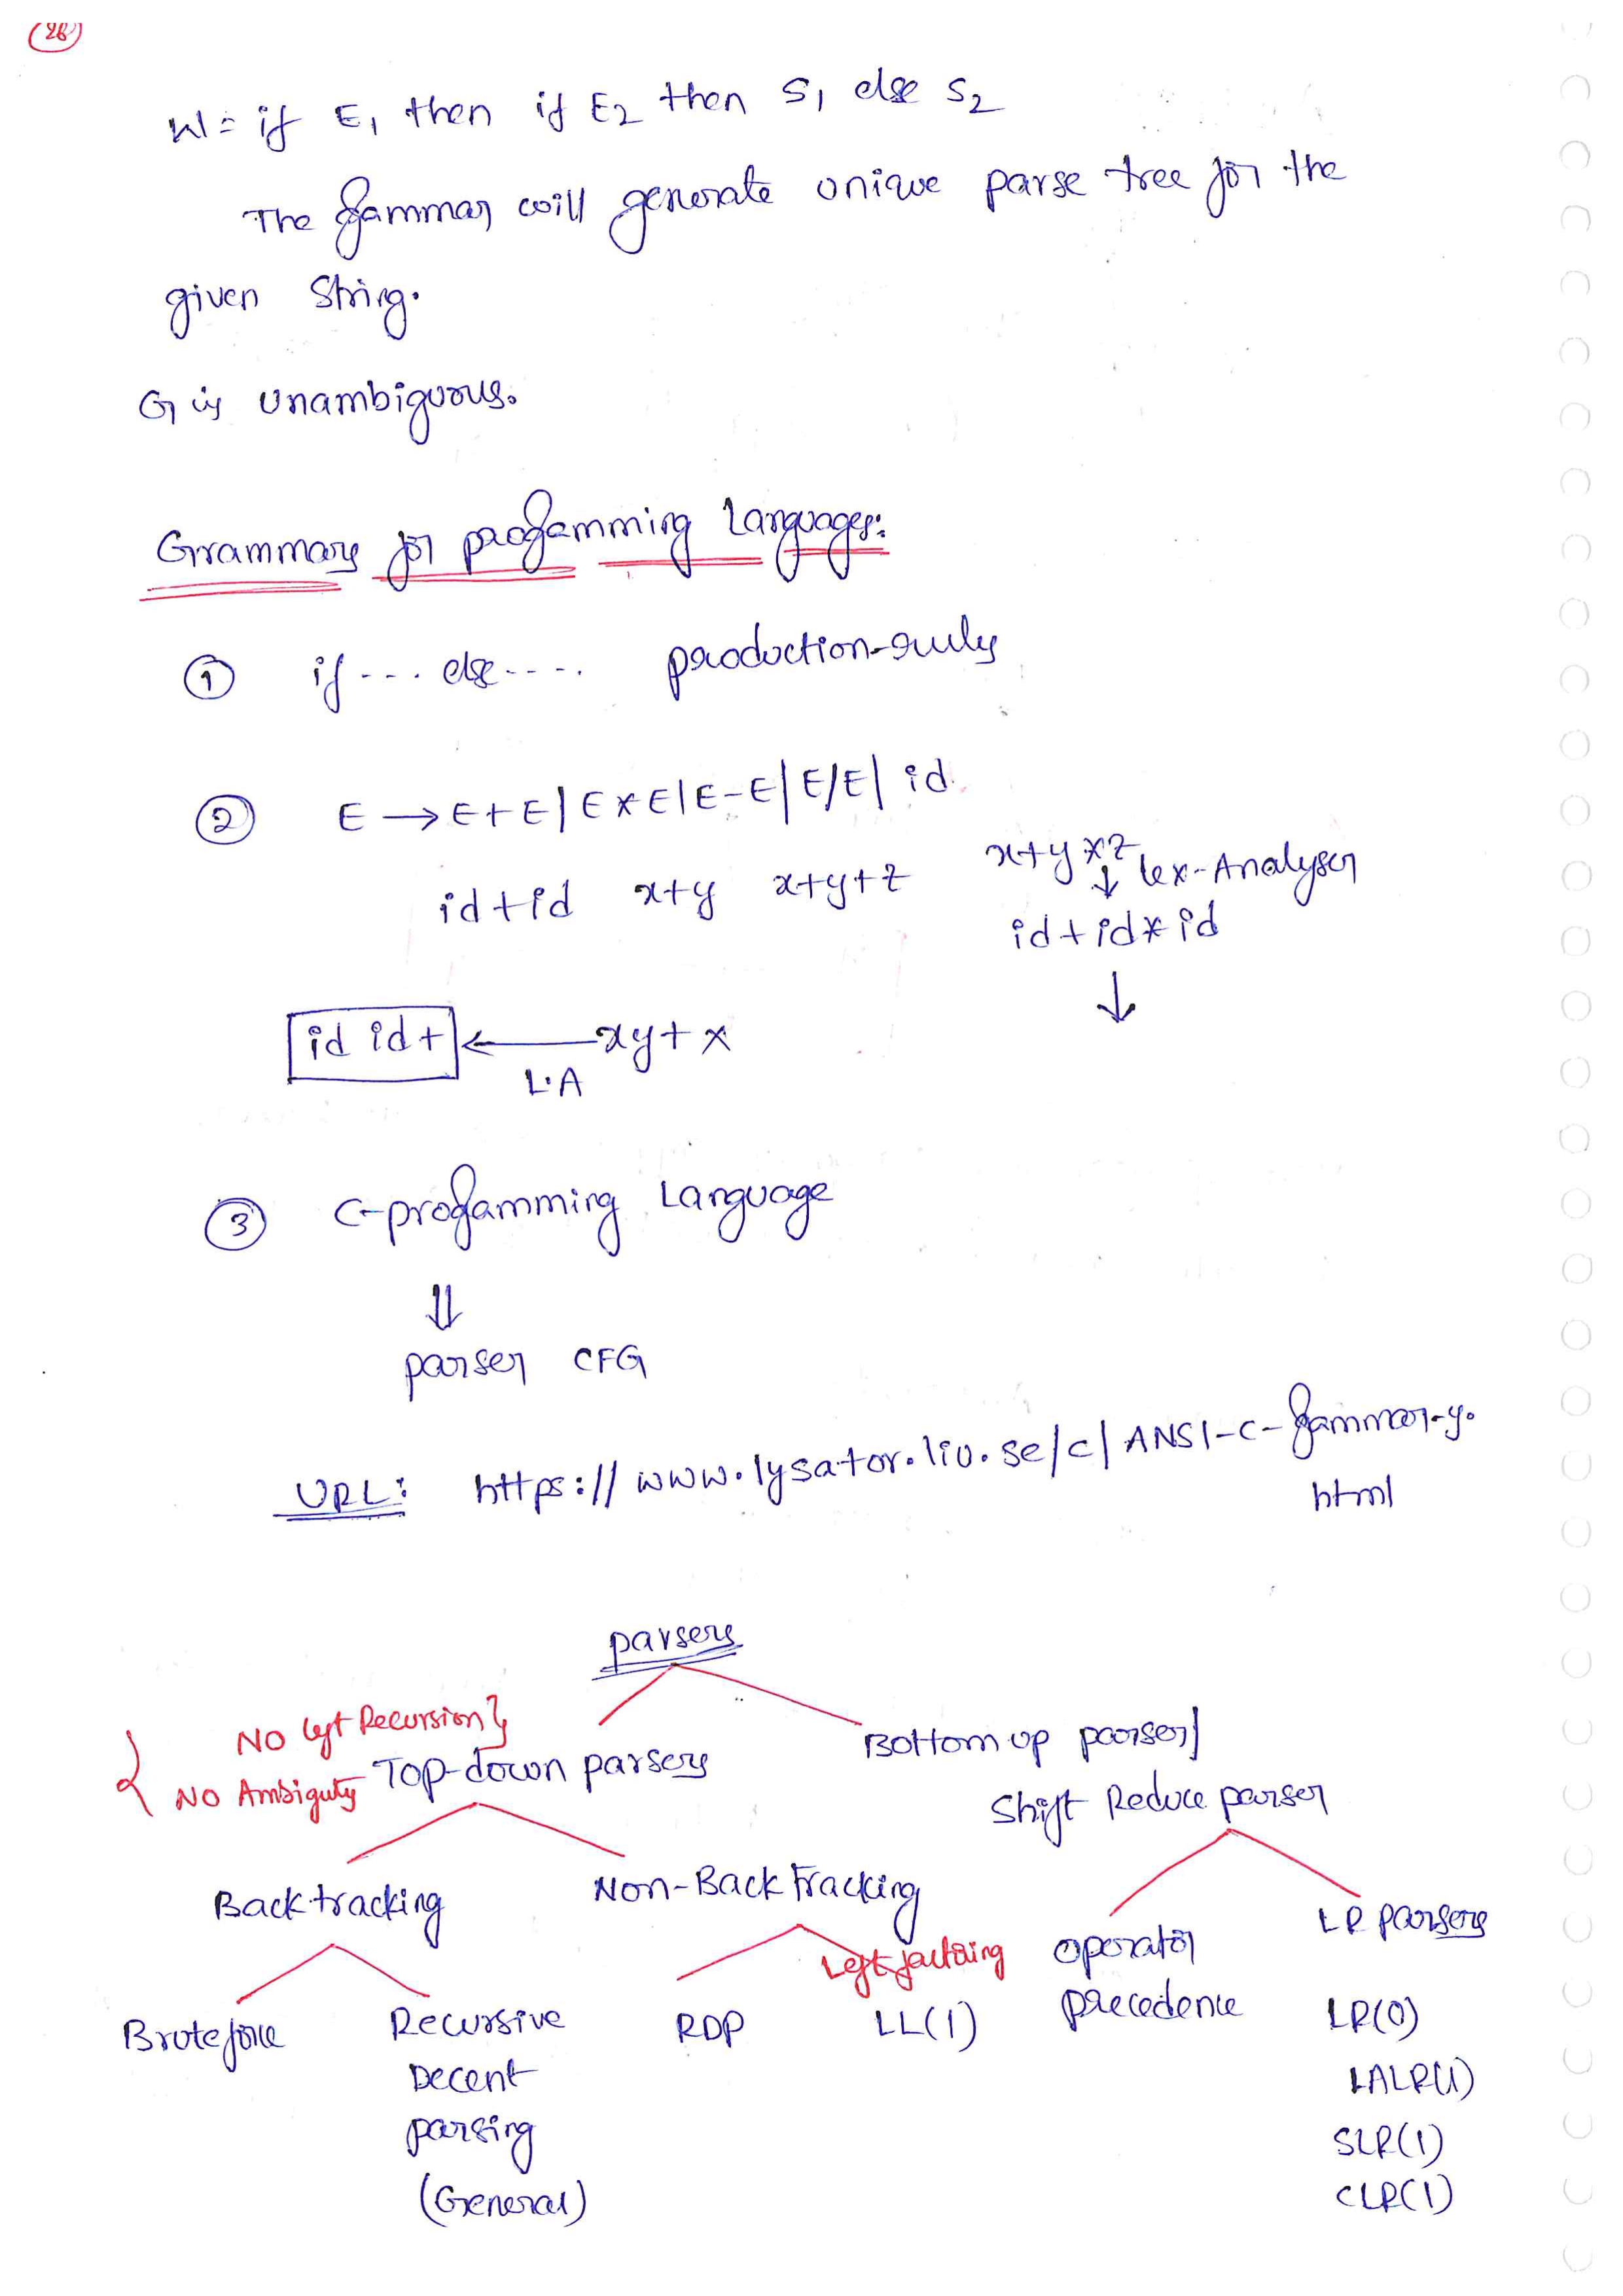 26
W = if E1 then if E2 then S1 else S2
The Grammar will generate uniqve parse tree for the
given String.
G is unambiguous.
Grammars for programming Languages:
① if ---- else ----- production-rules
② E → E+E | E*E | E-E | E/E | id.
id+id x+y x+y+z x+y*z
↓ lex-Analyser
id+id*id
↓
id id+ ← xy+ x
L.A
③ C-programming Language
⇓
parser CFG
URL: https://www.lysator.liu.se/c/ANSI-C-grammar-y.
html
parsers
No left Recursion}
{ No Ambiguty Top-down parsers Bottom up parser/
Shift Reduce parser
Backtracking Non-Backtracking Operator precedence LR parsers
Left factoring
Bruteforce Recursive Decent parsing (General) RDP LL(1) LR(0)
LALR(1)
SLR(1)
CLR(1)